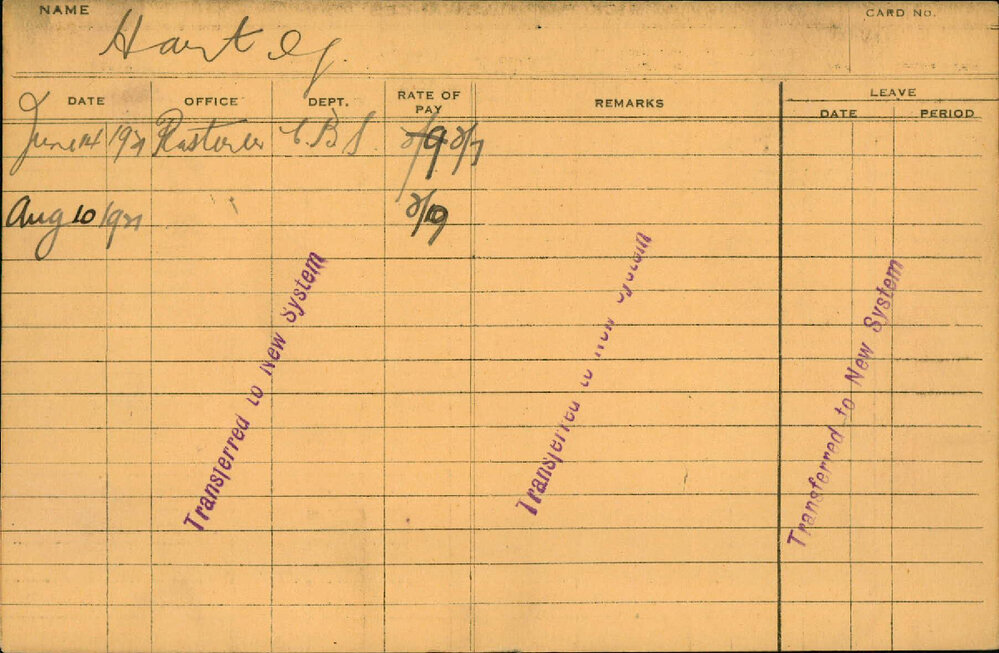 NAME
CARD NO.
Hart
DATE OFFICE DEPT. RATE OF PAY REMARKS LEAVE
DATE PERIOD
June 14 1921 C.B.S. 2/9 2/7
Aug 10 1921 2/19
Transferred to New System
Transferred to New System
Transferred to New System